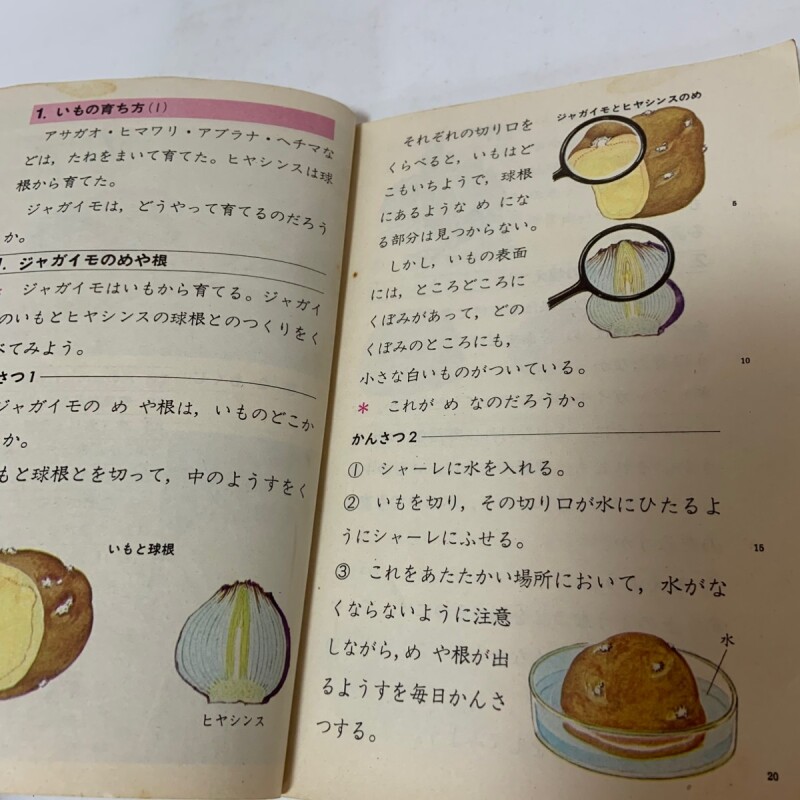 1. いもの育ち方(1)
アサガオ・ヒマワリ・アブラナ・ヘチマな
どは，たねをまいて育てた。ヒヤシンスは球
根から育てた。
ジャガイモは，どうやって育てるのだろう
か。
1. ジャガイモのめや根
ジャガイモはいもから育てる。ジャガイ
のいもとヒヤシンスの球根とのつくりをく
べてみよう。
さつ1
ジャガイモの め や根は，いものどこか
か。
もと球根とを切って，中のようすをく
いもと球根
ヒヤシンス
それぞれの切り口を
くらべると，いもはど
こもいちようで，球根
にあるような め にな
る部分は見つからない。
しかし，いもの表面
には，ところどころに
くぼみがあって，どの
くぼみのところにも，
小さな白いものがついている。
* これが め なのだろうか。
ジャガイモとヒヤシンスのめ
5
10
かんさつ2
① シャーレに水を入れる。
② いもを切り，その切り口が水にひたるよ
うにシャーレにふせる。
15
③ これをあたたかい場所において，水がな
くならないように注意
しながら，め や根が出
るようすを毎日かんさ
つする。
水
20